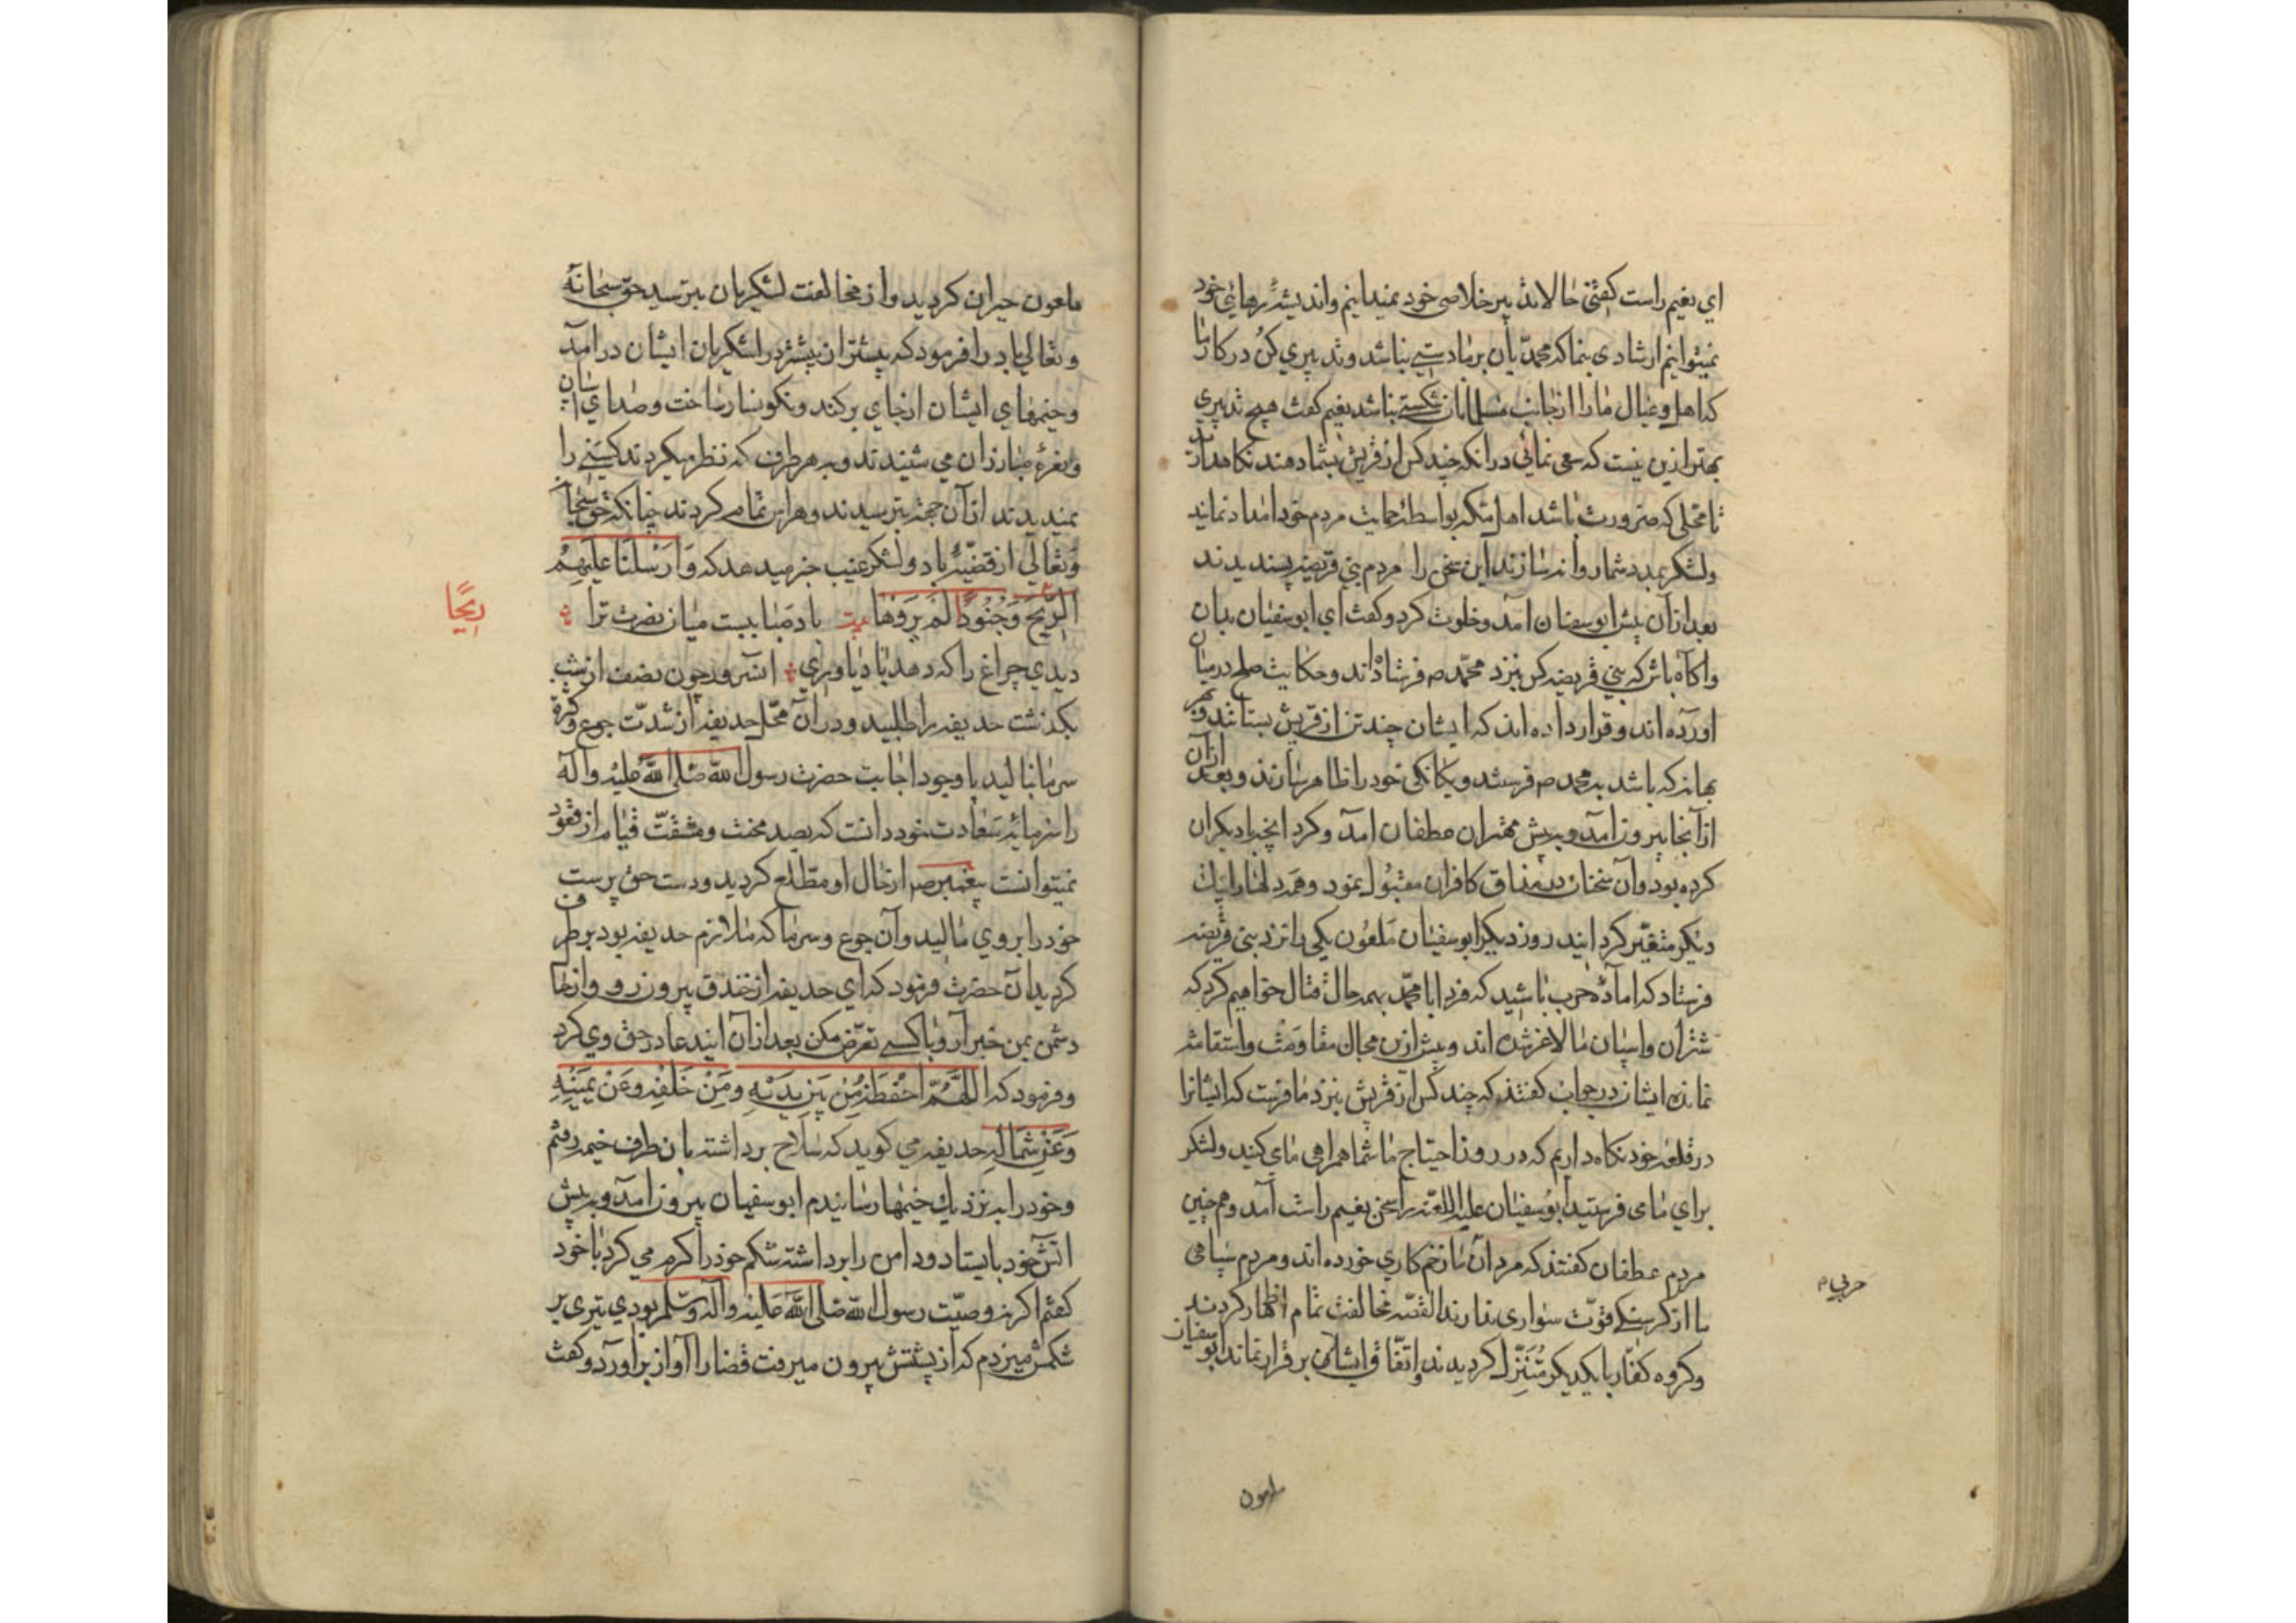 اي نعيم راست كفتي حالا تدبير خلاصي خود نميدانيم وانديشهٔ رهائي خود
نميتوانيم ارشادي بنما كه محمد يان بر ما دستي نباشد وتدبيري كن در كار ما
كه اهل وعيال مارا از جانب مسلمانان شكستي نباشد نعيم كفت هيچ تدبيري
بهتر ازين نيست كه سعي نمائي در انكه چند كس از قريش بشما دهند نكاهداريد
تا محلي كه ضرورت باشد اهل مكه بواسطهٔ حمايت مردم خود امداد نمايند
ولشكر بمدد شما روانه سازند اين سخن را مردم بني قريضه پسنديدند
بعد ازان پيش ابو سفيان آمد وخلوت كرد وكفت اي ابو سفيان بدان
واكاه باش كه بني قريضه كس بنزد محمد ص فرستاده اند وحكايت صلح در ميان
اورده اند وقرار داده اند كه ايشان چند تن از قريش بستانند وبهر
بهانه كه باشد به محمد ص فرستند ويكانكي خود را ظاهر سازند وبعد ازان
از آنجا بيرون آمد وبه پيش مهتران غطفان امد وكرد انچه با ديكران
كرده بود وآن سخنان در مذاق كافران مقبول نمود وهمه دلها را از يك
ديكر متغير كردانيد روز ديكر ابو سفيان ملعون يكي را نزد بني قريضه
فرستاد كه امادهٔ حرب باشيد كه فردا با محمد بهمه حال قتال خواهيم كرد كه
شتران واسپان ما لاغر شده اند وبيش ازين مجال مقاومت واستقامت
نمانده ايشان در جواب كفتند كه چند كس از قريش بنزد ما فرست كه ايشانرا
در قلعه خود نكاه داريم كه در روز احتياج ما شما همراهي ما مي كنيد ولشكر
براي ما مي فرستيد ابو سفيان عليه اللعنه را سخن نعيم راست آمد وهم چنين
مردم غطفان كفتند كه مردان ما زخم كاري خورده اند ومردم سپاهي
ما از كرسنكي قوت سواري ندارند القصه مخالفت تمام اظهار كردند
وكروه كفار با يكديكر متنزل كرديدند واتفاق ايشان بر قرار نماند ابو سفيان
حربي م
ملعون
ملعون حيران كرديد واز مخالفت لشكريان بترسيد حق سبحانه
وتعالي باد را فرمود كه بيشتر از پيشتر در لشكريان ايشان درامد
وخيمهاي ايشان از جاي بركند ونكونسار ساخت وصداي اسپان
ونعرهٔ مبارزان مي شنيدند وبه هر طرف كه نظر ميكردند كسي را
نميديدند ازآن جهة بترسيدند وهراس تمام كردند چنانكه حق سبحانه
وتعالي از قضيهٔ باد ولشكر غيب خبر ميدهد كه وَاَرْسَلْنَا عَلَيْهِمْ
الرِّيْحَ وَجُنُودًا لَمْ تَرَوْهَا بيت باد صبا ببست ميان نصرت ترا
رِيْحًا
ديدي چراغ را كه دهد باد ياوري انسرور چون نصف از شب
بكذشت حذيفه را طلبيد ودران محل حذيفه از شدت جوع وكثرة
سرما ناليد با وجود اجابت حضرت رسول الله صلى الله عليه وآله
را سرمايهٔ سعادت خود دانست كه بصد محنت ومشقت قيام از قعود
نميتوانست پيغمبر ص از حال او مطلع كرديد ودست حق پرست
خود را بر وي ماليد وآن جوع وسرما كه ملازم حذيفه بود بر طرف
كرديد آن حضرت فرمود كه اي حذيفه از خندق بيرون رو واز حال
دشمن بمن خبر آر وبا كسي تعرض مكن بعد ازان ايند عا در حق وي كرد
وفرمود كه اللّهُمَّ احْفَظْهُ مِنْ بَيْنِ يَدَيْهِ ومِنْ خَلْفِهِ وعَنْ يَمِيْنِهِ
وَعَنْ شِمَالِهِ حذيفه مي كويد كه سلاح برداشته بان طرف خيمه رفتم
وخود را به نزديك خيمها رسانيدم ابو سفيان بيرون امد وبه پيش
اتش خود بايستاد ودامن را برداشته شكم خود را كرم مي كرد با خود
كفتم اكر نه وصيت رسول الله صلى الله عليه وآله وسلم بودي تيري بر
شكمش ميزدم كه از پشتش بيرون ميرفت قضارا آواز براورد وكفت